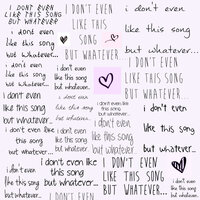 I DON'T EVEN
LIKE THIS SONG
BUT WHATEVER
I DON'T EVEN
LIKE THIS
SONG
BUT WHATEVER.
i don't even
like this song
but whatever...
i don't even
like this song
but whatever...
I DON'T EVEN
LIKE THIS SONG
BUT WHATEVER...
i don't even
like this song
but whatever...
i don't even
like this song
but whatever...
i don't even
like this song
but whatever...
i don't even like
this song
but whatever...
i don't even like this song
but whatever...
i don't even
like this song
but whatever...
i don't even
like this song
but whatever...
i don't even like
this song
but whatever...
I DON'T EVEN
LIKE THIS SONG
BUT WHATEVER...
i don't even
like this song
but whatever...
i don't even
like this song
but whatever...